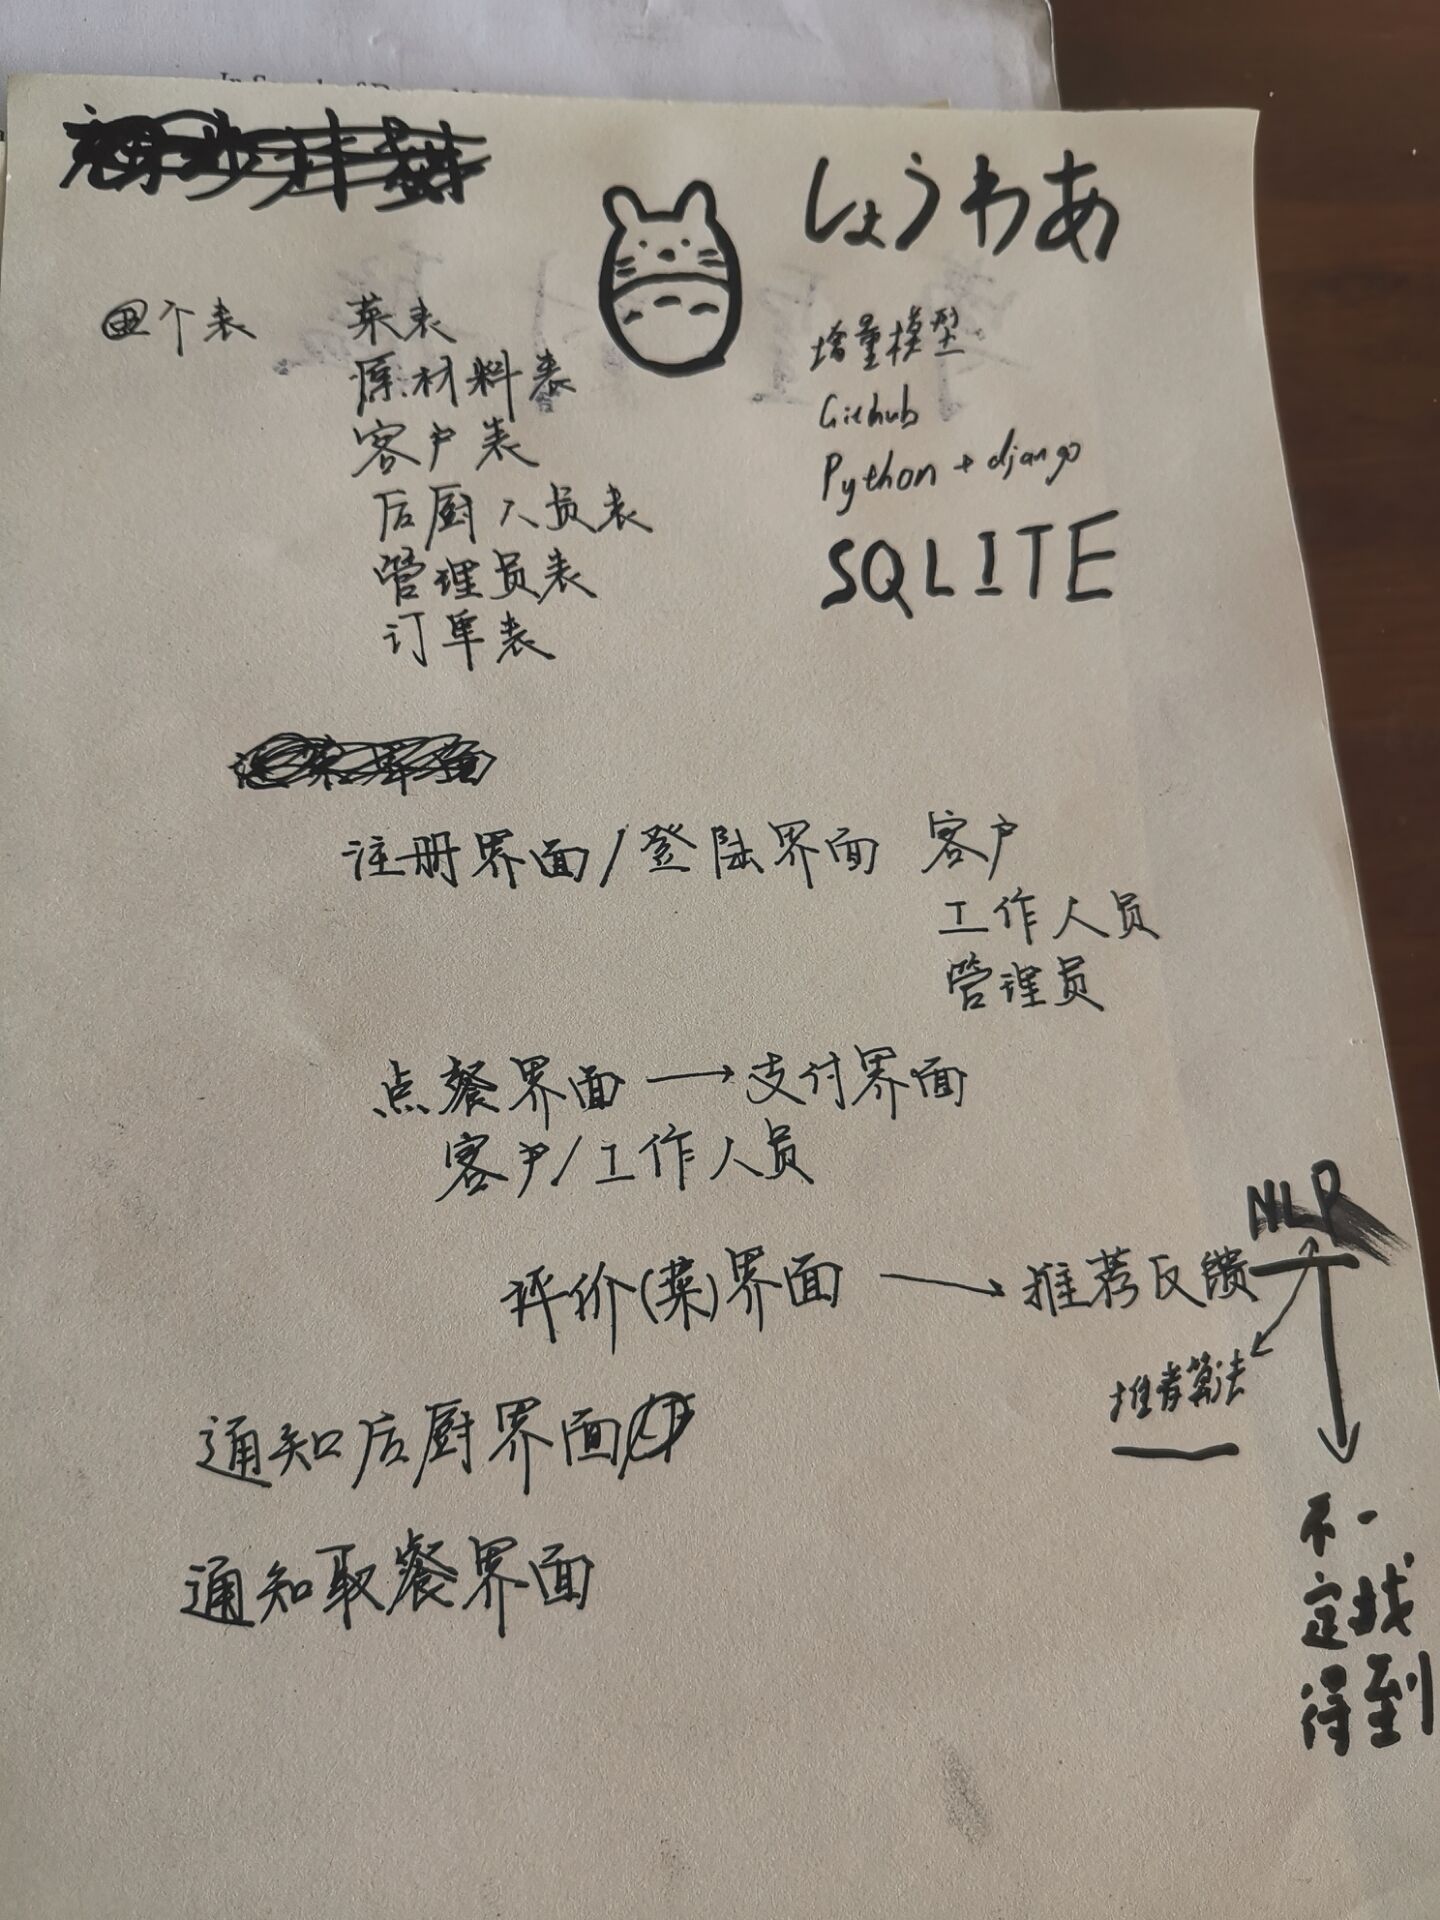 しょうわあ
四个表
菜表
原材料表
客户表
后厨人员表
管理员表
订单表
增量模型
Github
Python + django
SQLITE
注册界面/登陆界面 客户
工作人员
管理员
点餐界面 → 支付界面
客户/工作人员
评价(菜)界面 → 推荐反馈
NLP
推荐算法
不一
定找
得到
通知后厨界面
通知取餐界面